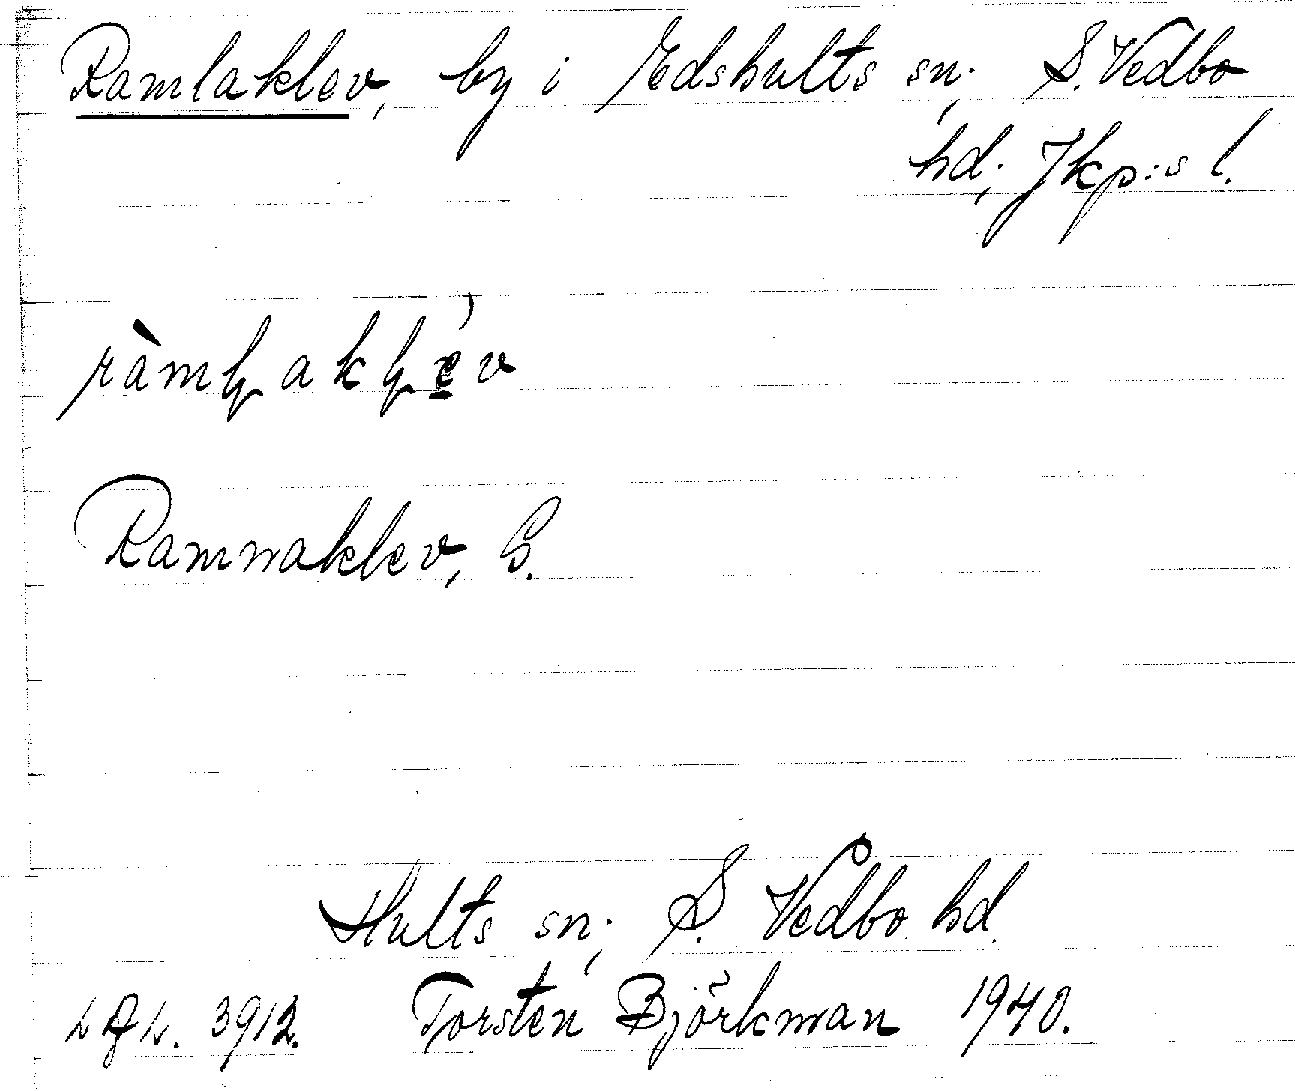 Ramlaklev, by i Edshults sn; S. Vedbo
hd; Jkp:s l.
ràmḷakḷe̠v
Ramnaklev, G.
Hults sn; S. Vedbo hd.
3912. Torsten Björkman 1940.